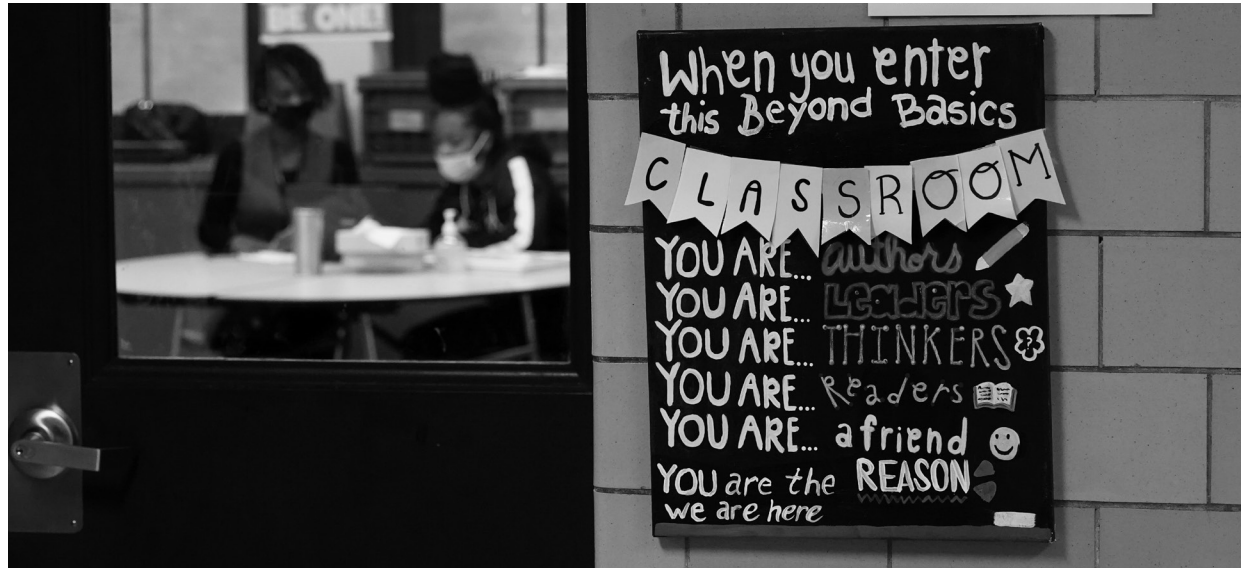 BE ONE!
When you enter
this Beyond Basics
CLASSROOM
YOU ARE... authors
YOU ARE... Leaders
YOU ARE... THINKERS
YOU ARE... Readers
YOU ARE... a friend
YOU are the REASON
we are here